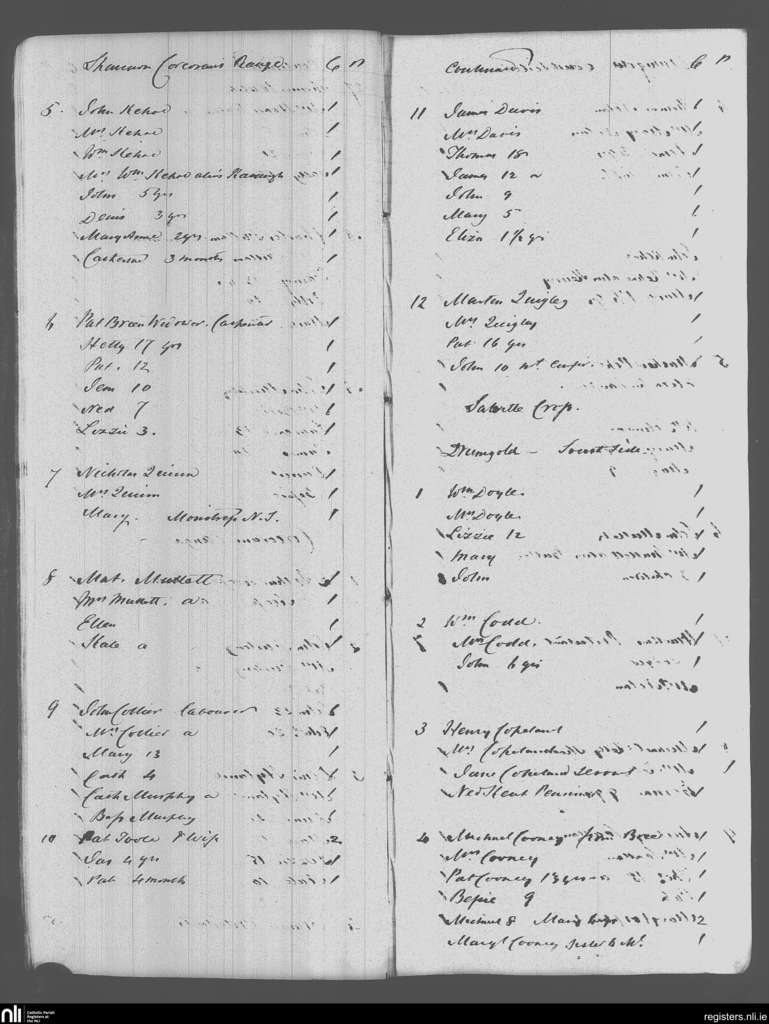 Shannon Corcorans Range C P
5. John Kehoe 1
Mrs Kehoe 1
Wm Kehoe 1
Mrs Wm Kehoe alias Kavanagh 1
John 5 yrs 1
Denis 3 yrs 1
Mary Anne 2 yrs 1
Catherine 3 months 1
6 Pat Breen Widower. Carpenter 1
Hetty 17 yrs 1
Pat. 12 1
Jem 10 1
Ned 7 1
Lizzie 3. 1
7 Nicholas Quinn 1
Mrs Quinn 1
Mary. N.T. 1
8 Mat. Mullett 1
Mrs Mullett. a 1
Ellen 1
Kate a 1
9 John Collier labourer
Mrs Collier a 1
Mary 13 1
Cath 4 1
Cath Murphy a 1
Bess Murphy
10 Pat Toole & Wife 2
Jas 4 yrs 1
Pat 4 month 1
Continued C P
11 James Davis 1
Mrs Davis 1
Thomas 18 1
James 12 a 1
John 9 1
Mary 5 1
Eliza 1 1/2 yrs 1
12 Martin Quigley 1
Mrs Quigley 1
Pat 16 yrs 1
John 10
Salville Crop.
Drumgold - South Side
1 Wm Doyle 1
Mrs Doyle 1
Lizzie 12 1
Mary 1
John 1
2 Wm Codd. 1
Mrs Codd. Protestant 1
John 6 yrs 1
3 Henry Copeland 1
Mrs Copeland 1
Jane Copeland 1
Ned Kent Pensioner 1
4 Michael Cooney 1
Mrs Cooney 1
Pat Cooney 13 yrs 1
Bessie 9 1
Michael 8 Mary 2
Mary Cooney sister to Mr. 1
nli
Catholic Parish
Registers at
the NLI
registers.nli.ie